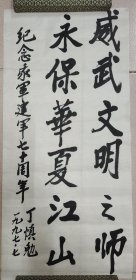 威武文明之师
永保華夏江山
纪念我軍建軍七十周年
丁慎勉
一九九七.七